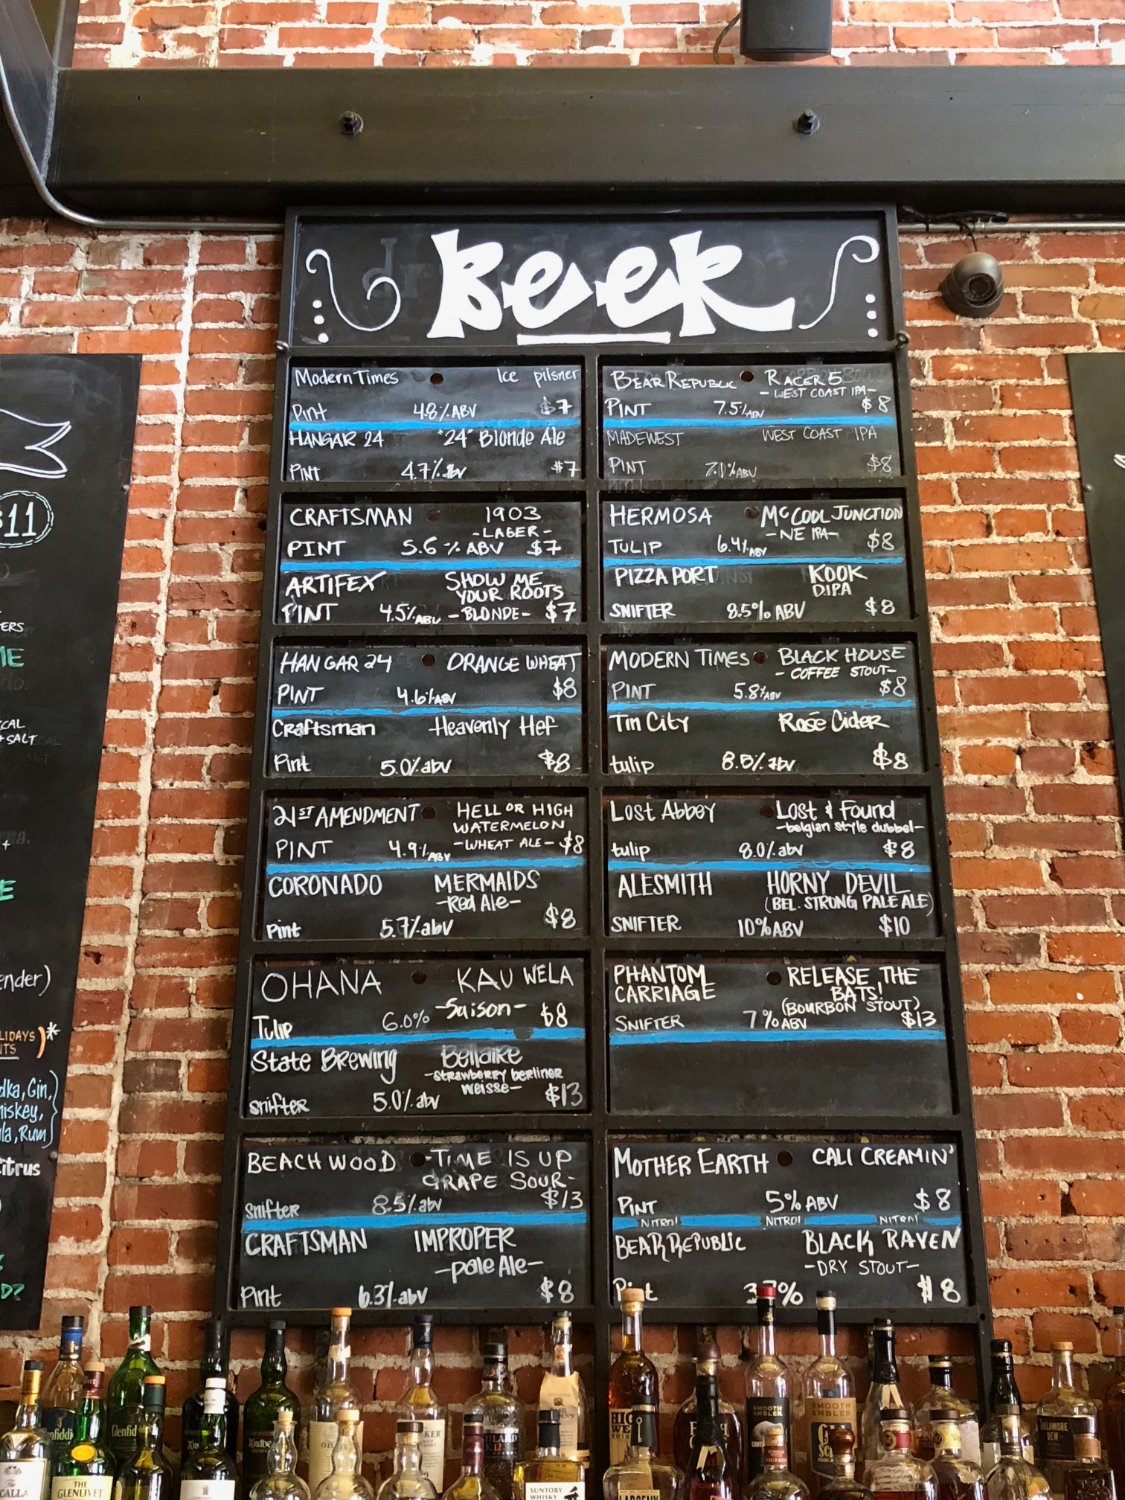 Beer
Modern Times Ice pilsner
Pint 4.8% ABV $7
HANGAR 24 "24" Blonde Ale
PINT 4.7% abv $7
CRAFTSMAN 1903
-LAGER-
PINT 5.6% ABV $7
ARTIFEX SHOW ME
YOUR ROOTS
PINT 4.5% ABV -BLONDE- $7
HANGAR 24 ORANGE WHEAT
PINT 4.6% ABV $8
Craftsman Heavenly Hef
Pint 5.0% abv $8
21ST AMENDMENT HELL OR HIGH
WATERMELON
PINT 4.9% ABV -WHEAT ALE- $8
CORONADO MERMAIDS
-Red Ale-
Pint 5.7% abv $8
OHANA KAU WELA
-Saison-
Tulip 6.0% $8
State Brewing Bellaire
-strawberry berliner
weisse-
snifter 5.0% abv $13
BEACHWOOD -TIME IS UP
GRAPE SOUR-
Snifter 8.5% abv $13
CRAFTSMAN IMPROPER
-pale Ale-
Pint 6.3% abv $8
BEAR REPUBLIC RACER 5
-WEST COAST IPA-
PINT 7.5% ABV $8
MADEWEST WEST COAST IPA
PINT 7.0% ABV $8
HERMOSA McCOOL JUNCTION
-NE IPA-
TULIP 6.4% ABV $8
PIZZA PORT KOOK
DIPA
SNIFTER 8.5% ABV $8
MODERN TIMES BLACK HOUSE
-COFFEE STOUT-
PINT 5.8% ABV $8
Tin City Rosé Cider
tulip 8.5% abv $8
Lost Abbey Lost & Found
-belgian style dubbel-
tulip 8.0% abv $8
ALESMITH HORNY DEVIL
(BEL. STRONG PALE ALE)
SNIFTER 10% ABV $10
PHANTOM RELEASE THE
CARRIAGE BATS!
(BOURBON STOUT)
SNIFTER 7% ABV $13
MOTHER EARTH CALI CREAMIN'
PINT 5% ABV $8
NITRO! NITRO! NITRO!
BEAR REPUBLIC BLACK RAVEN
-DRY STOUT-
Pint $8
$11
ender)
dka, Gin,
hiskey,
Citrus
THE
GLENLIVET
SMOOTH
AMBLER
SMOOTH
AMBLER
SUNTORY
WHISKY